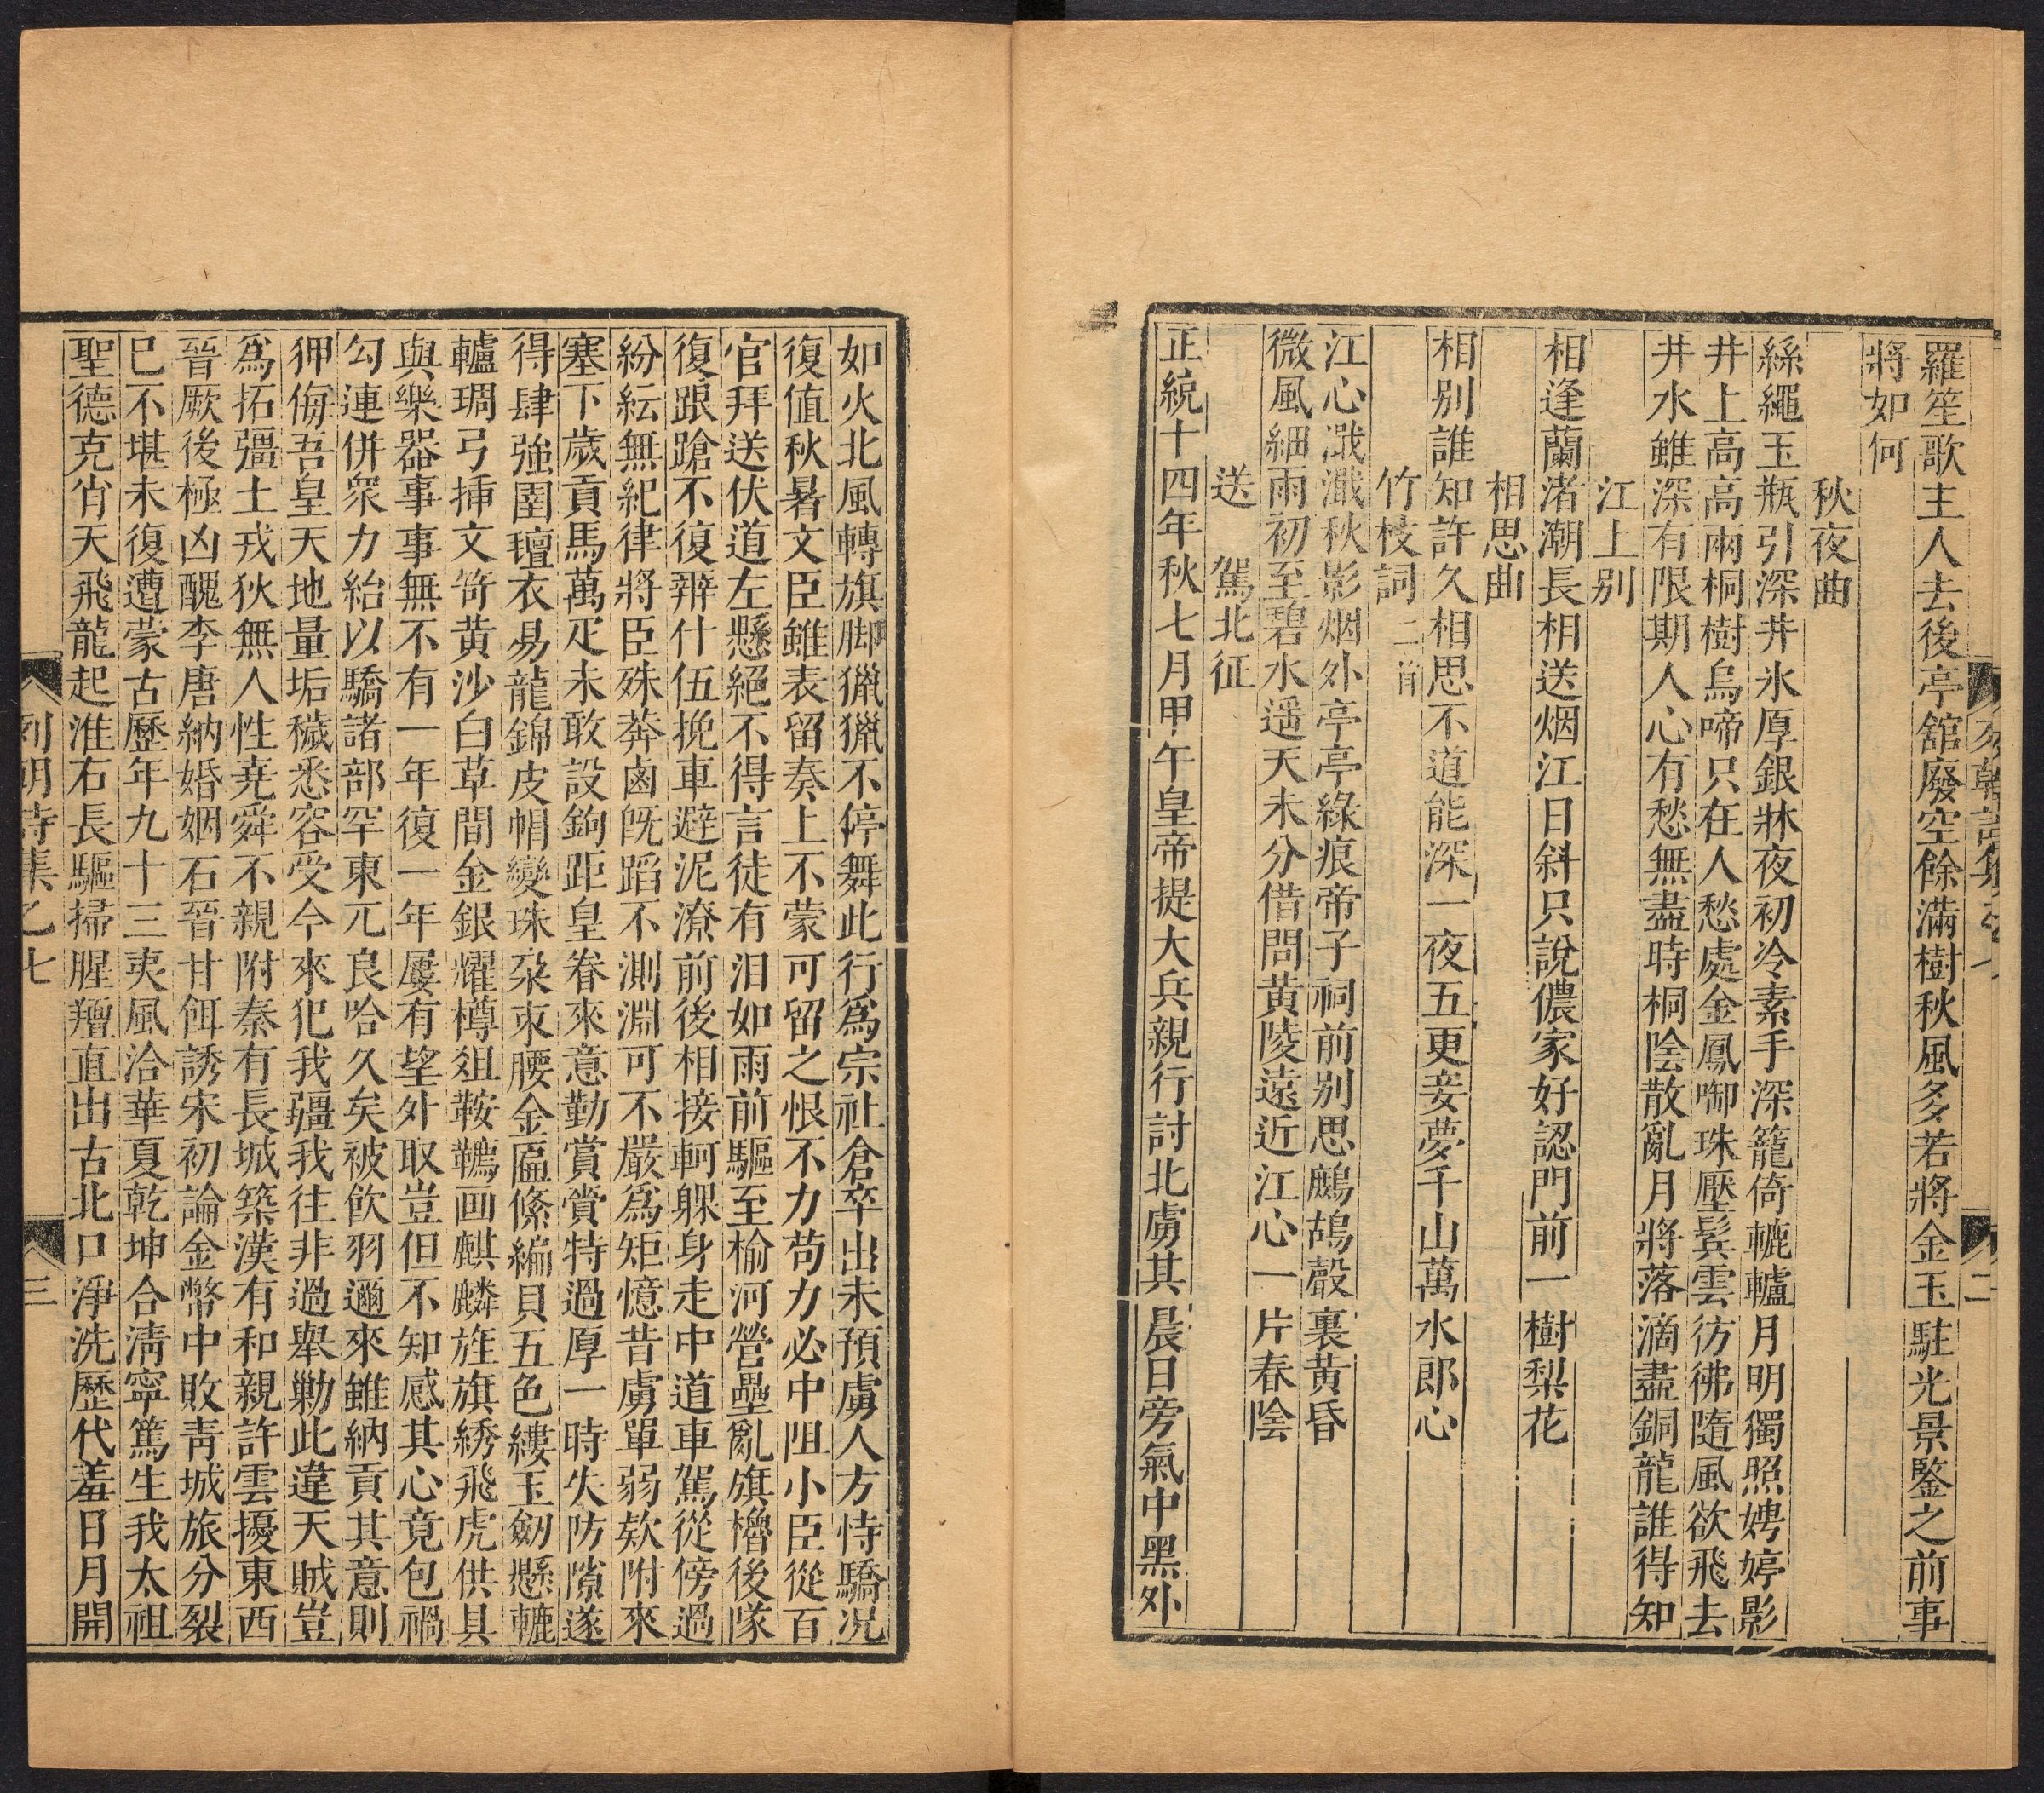 羅笙歌主人去後亭舘廢空餘滿樹秋風多若將金玉駐光景鑒之前事
將如何
秋夜曲
絲繩玉瓶引深井氷厚銀牀夜初冷素手深籠倚轆轤月明獨照娉婷影
井上高高兩桐樹烏啼只在人愁處金鳳啣珠壓鬂雲彷彿隨風欲飛去
井水雖深有限期人心有愁無盡時桐陰散亂月將落滴盡銅龍誰得知
江上别
相逢蘭渚潮長相送烟江日斜只說儂家好認門前一樹梨花
相思曲
相别誰知許久相思不道能深一夜五更妾夢千山萬水郎心
竹枝詞二首
江心濺濺秋影烟外亭亭綠痕帝子祠前别思鷓鴣聲裏黃昏
微風細雨初至碧水遥天未分借問黃陵遠近江心一片春陰
送　駕北征
正統十四年秋七月甲午皇帝提大兵親行討北虜其晨日旁氣中黑外
如火北風轉旗脚獵獵不停舞此行爲宗社倉卒出未預虜人方恃驕况
復值秋暑文臣雖表留奏上不蒙可留之恨不力苟力必中阻小臣從百
官拜送伏道左懸絕不得言徒有泪如雨前驅至榆河營壘亂旗櫓後隊
復踉蹌不復辨什伍挽車避泥潦前後相接軻躶身走中道車駕從傍過
紛紜無紀律將臣殊莽鹵旣蹈不測淵可不嚴爲矩憶昔虜單弱欵附來
塞下歲貢馬萬疋未敢設鉤距皇眷來意勤賞賚特過厚一時失防隙遂
得肆強圉氊衣易龍錦皮帽變珠朶束腰金匾絛編貝五色縷玉劒懸轆
轤琱弓揷文笴黄沙白草間金銀耀樽俎鞍韉画麒麟旌旗綉飛虎供具
與樂器事事無不有一年復一年屢有望外取豈但不知感其心竟包禍
勾連併衆力紿以驕諸部罕東兀良哈久矣被飲羽邇來雖納貢其意則
狎侮吾皇天地量垢穢悉容受今來犯我疆我往非過舉勦此違天賊豈
爲拓彊土戎狄無人性堯舜不親附秦有長城築漢有和親許雲擾東西
晉厥後極凶醜李唐納婚姻石晉甘餌誘宋初論金幣中敗靑城旅分裂
已不堪未復遭蒙古歷年九十三夷風洽華夏乾坤合淸寧篤生我太祖
聖德克肖天飛龍起淮右長驅掃腥羶直出古北口淨洗歷代羞日月開
列朝詩集乙七
三